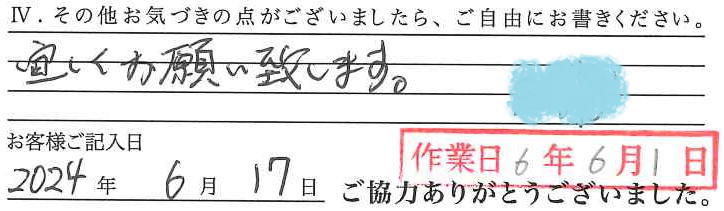 Ⅳ．その他お気づきの点がございましたら、ご自由にお書きください。
宜しくお願い致します。
お客様ご記入日
作業日 6 年 6 月 1 日
2024 年 6 月 17 日
ご協力ありがとうございました。